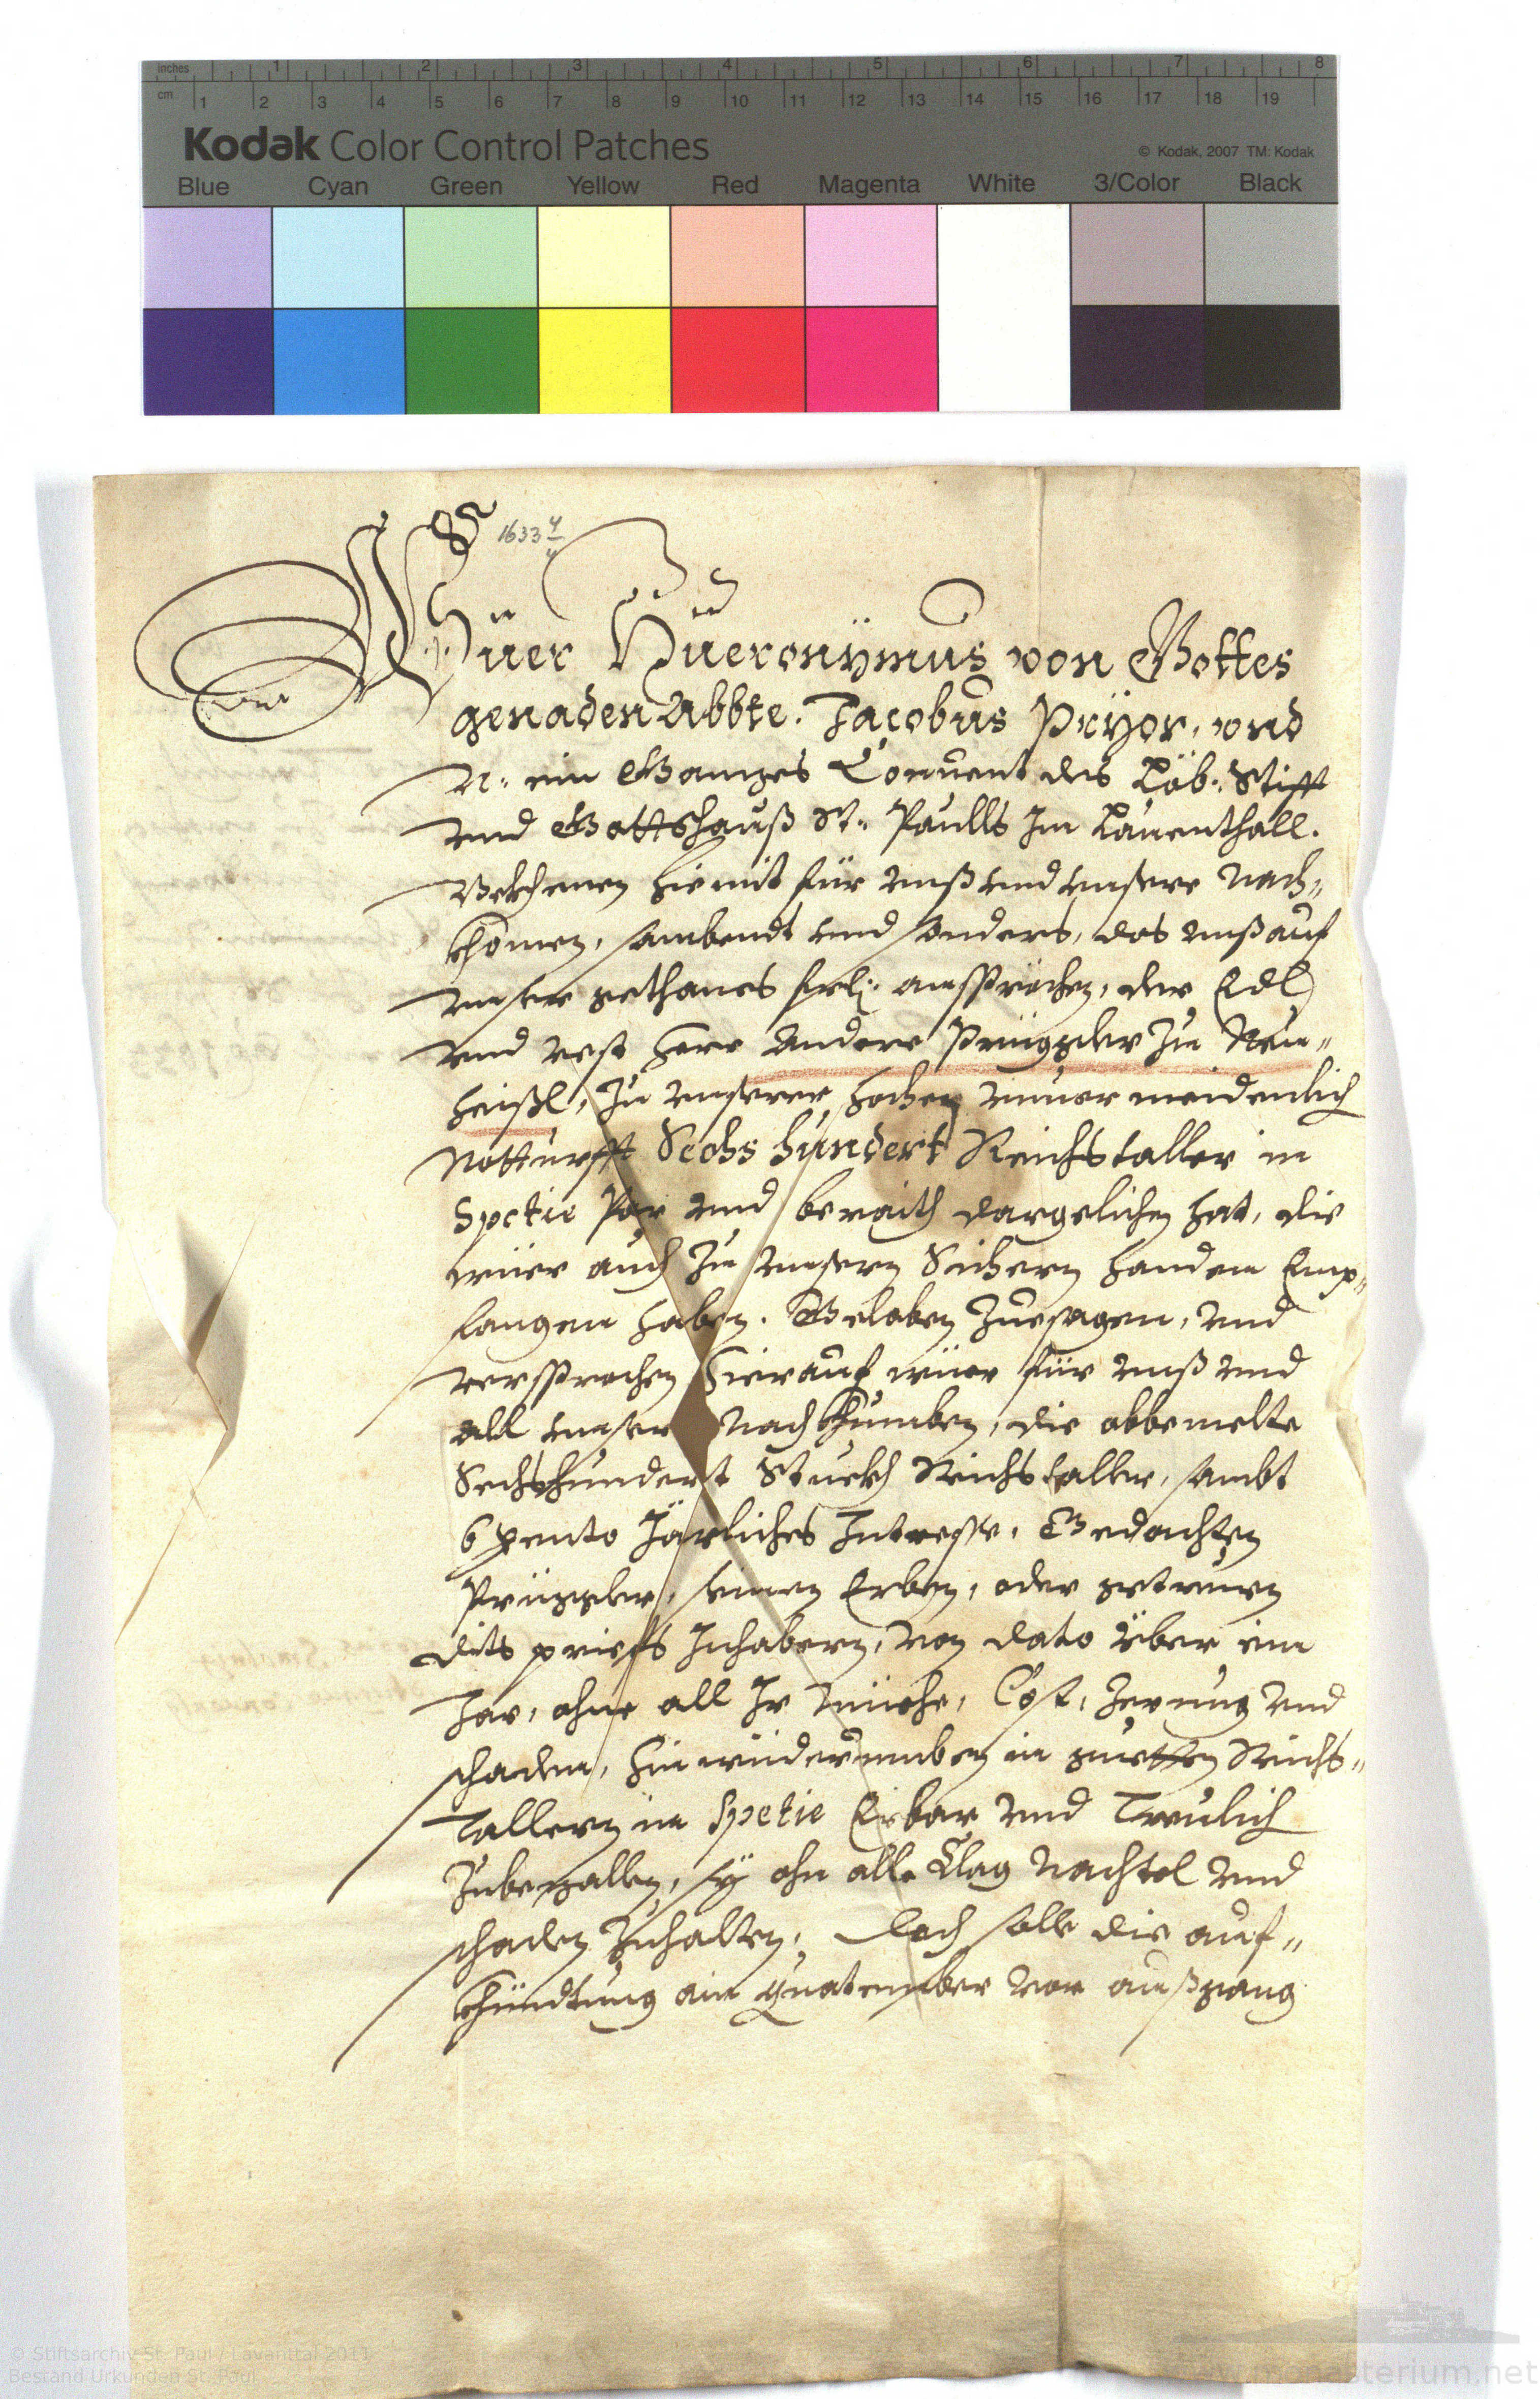 inches 1 2 3 4 5 6 7 8
cm 1 2 3 4 5 6 7 8 9 10 11 12 13 14 15 16 17 18 19
Kodak Color Control Patches © Kodak, 2007 TM: Kodak
Blue Cyan Green Yellow Red Magenta White 3/Color Black
1633 4/4
Wüer Hüeronÿmus von Gottes
genaden Abbte. Jacobus Prÿor, vnd
N: ein Ganzes Conuent des Löb: Stifft
vnd Gottshauß St: Paulls Im Lauenthall.
Bekhenen hiemit für vnß vnd vnsere Nach-
khomen, sambendt vnd sonders, das vnß auf
vnser gethanes frl: ansprechen, der Edl
vnd vest Herr Andere Prüggler Zu Neu-
heißl, Zu vnserer hochen vnuermeidenlich
Notturfft Sechs hundert Reichstaller in
Spetie Par vnd beraith dargelichen hat, die
wüer auch Zu vnsern Sichern handen Emp-
fangen haben. Geloben Zuesagen, vnd
versprechen hierauf wüer für vnß vnd
all vnser Nachkhumben, die obbemelte
Sechshundert Stuckh Reichstaller, sambt
6 per cento Järliches Interesse, Gedachten
Prüggler, seinen Erben, oder getreuen
dits prieffs Inhabern, von dato über ein
Jar, ohne all Ir müehe, Cost, Zerung vnd
schaden, hinwiderumben in guetten Reichs-
Tallern in Spetie Erbar vnd Treulich
Zubezallen, sÿ ohn alle Clag Nachtel vnd
schaden Zuhalten, Doch solle die auf-
khündtung ain Quatember vor außgang
© Stiftsarchiv St. Paul / Lavanttal 2011
Bestand Urkunden St. Paul
www.monasterium.net